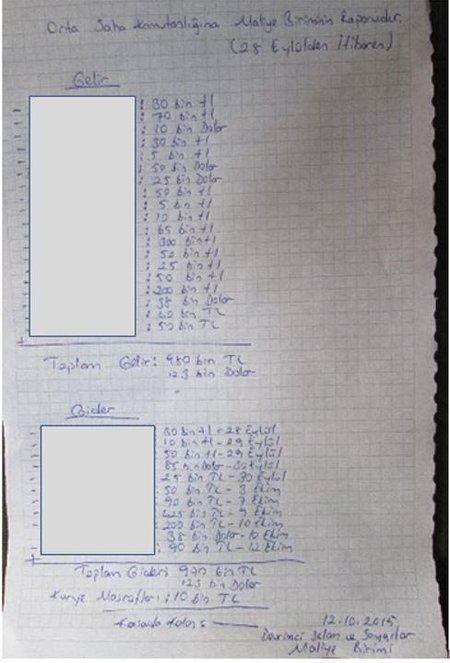 Orta Saha Komutanlığına Maliye Biriminin Raporudur.
(28 Eylülden İtibaren)
Gelir
: 30 bin tl
: 70 bin tl
: 10 bin Dolar
: 30 bin tl
: 5 bin tl
: 50 bin Dolar
: 25 bin Dolar
: 50 bin tl
: 5 bin tl
: 10 bin tl
: 65 bin tl
: 300 bin tl
: 50 bin tl
: 25 bin tl
: 50 bin tl
: 200 bin tl
: 38 bin Dolar
: 40 bin TL
: 50 bin TL
Toplam Gelir: 980 bin TL
123 bin Dolar
Gider
: 30 bin tl - 28 Eylül
: 10 bin tl - 29 Eylül
: 50 bin tl - 29 Eylül
: 85 bin Dolar - 30 Eylül
: 25 bin TL - 30 Eylül
: 50 bin TL - 3 Ekim
: 90 bin TL - 7 Ekim
: 425 bin TL - 9 Ekim
: 200 bin TL - 10 Ekim
: 38 bin Dolar - 10 Ekim
: 90 bin TL - 12 Ekim
Toplam Gideri 970 bin TL
123 bin Dolar
Kurye Masrafları : 10 bin TL
Kasada Kalan :
12.10.2015
Devrimci Selam ve Saygılar
Maliye Birimi